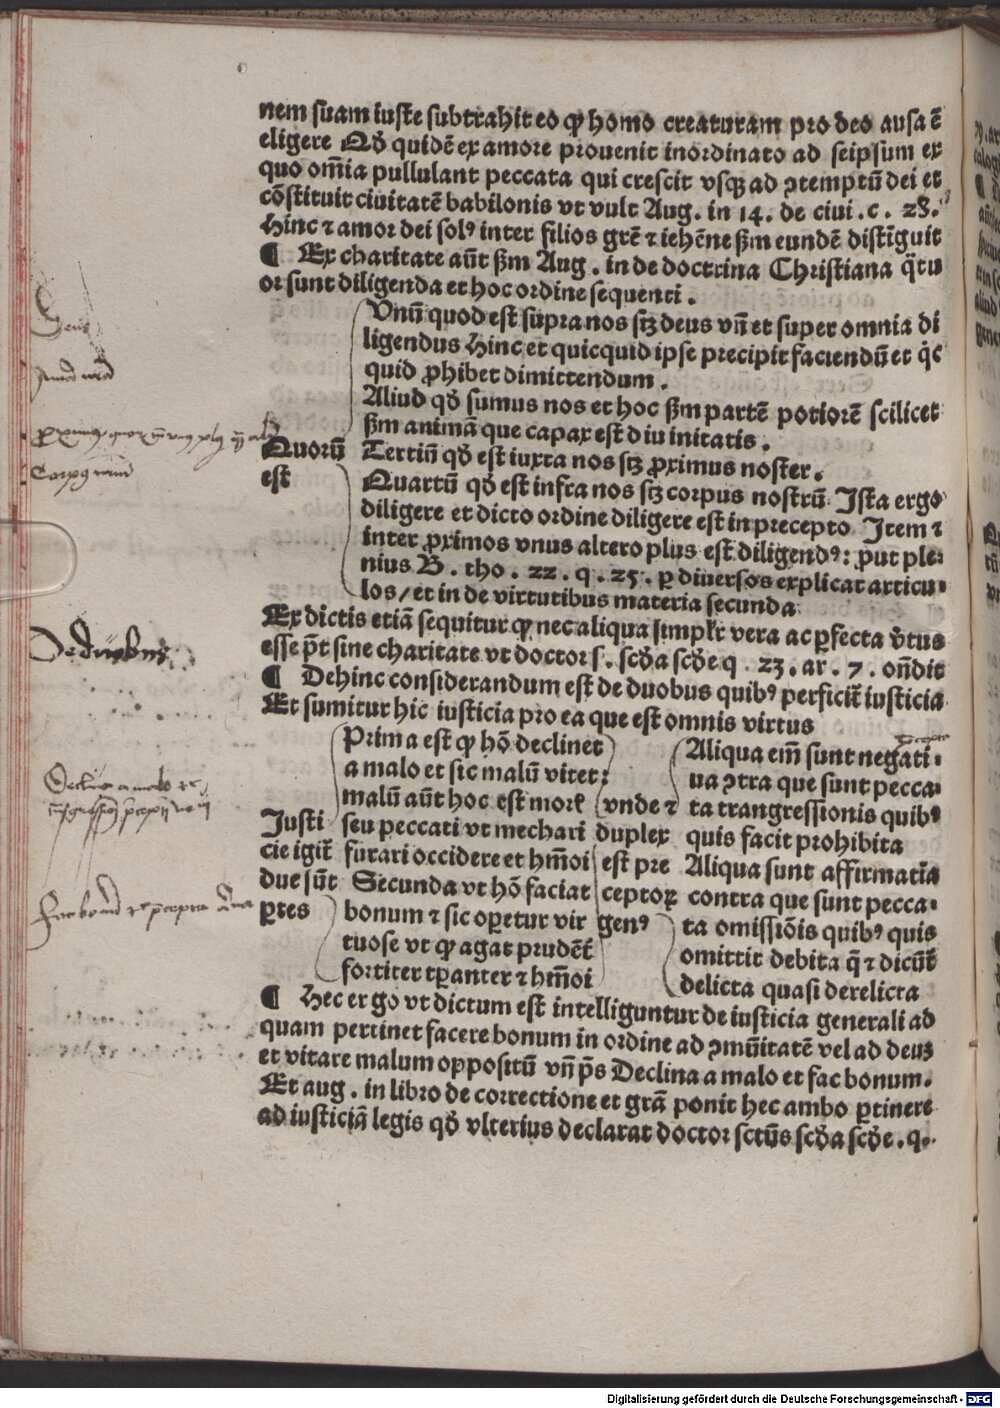 nem suam iuste subtrahit eo ꝙ homo creaturam pro deo ausa ē
eligere Qđ quidē ex amore prouenit inordinato ad seipsum ex
quo om̄ia pullulant peccata qui crescit vsqꝫ ad ↄtemptū dei et
cōstituit ciuitatē babilonis vt vult Aug. in 14. de ciui. c. 28.
Hinc ⁊ amor dei solꝰ inter filios grē ⁊ iehēne ẞm eundē distīguit
¶ Ex charitate aūt ẞm Aug. in de doctrina Christiana q̄tu
or sunt diligenda et hoc ordine sequenti.
Vnū quod est supra nos sꝫ deus vn̄ et super omnia di
ligendus Hinc et quicquid ipse precipit faciendū et q̇c
quid ꝓhibet dimittendum.
Aliud qđ sumus nos et hoc ẞm partē potiorē scilicet
ẞm animā que capax est diuinitatis.
Quorū
est
Tertiū qđ est iuxta nos sꝫ ꝓximus noster.
Quartū qđ est infra nos sꝫ corpus nostrū Ista ergo
diligere et dicto ordine diligere est in precepto Item ⁊
inter ꝓximos vnus altero plus est diligendꝰ: ꝓut ple-
nius B. tho. 22. q. 25. ꝑ diuersos explicat articu-
los/ et in de virtutibus materia secunda
Ex dictis etiā sequitur ꝙ nec aliqua simpl'r vera ac ꝑfecta v̇tus
esse p̄t sine charitate vt doctor s. scđa scđe q. 23. ar. 7. on̄dit
¶ Dehinc considerandum est de duobus quibꝰ perficit̄ iusticia
Et sumitur hic iusticia pro ea que est omnis virtus
Justi
cie igit̄
due sūt
ꝑtes
Prima est ꝙ hō declinet
a malo et sic malū vitet:
malū aūt hoc est morl'
seu peccati vt mechari
furari occidere et hm̄oi
Secunda vt hō faciat
bonum ⁊ sic oꝑetur vir
tuose vt ꝙ agat prudēt̄
fortiter tꝑanter ⁊ hm̄oi
vnde ⁊
duplex
est pre
ceptoꝝ
genꝰ
Aliqua em̄ sunt negati-
ua ↄtra que sunt pecca-
ta trangressionis quibꝰ
quis facit prohibita
Aliqua sunt affirmatīa
contra que sunt pecca-
ta omissiōis quibꝰ quis
omittit debita q̄ ⁊ dicūt̄
delicta quasi derelicta
¶ Hec ergo vt dictum est intelliguntur de iusticia generali ad
quam pertinet facere bonum in ordine ad ↄmūitatē vel ad deuꝫ
et vitare malum oppositū vn̄ p̄s Declina a malo et fac bonum.
Et aug. in libro de correctione et grā ponit hec ambo ꝑtinere
ad iusticiā legis qđ vlterius declarat doctor sctūs scđa scđe. q.
Digitalisierung gefördert durch die Deutsche Forschungsgemeinschaft - DFG